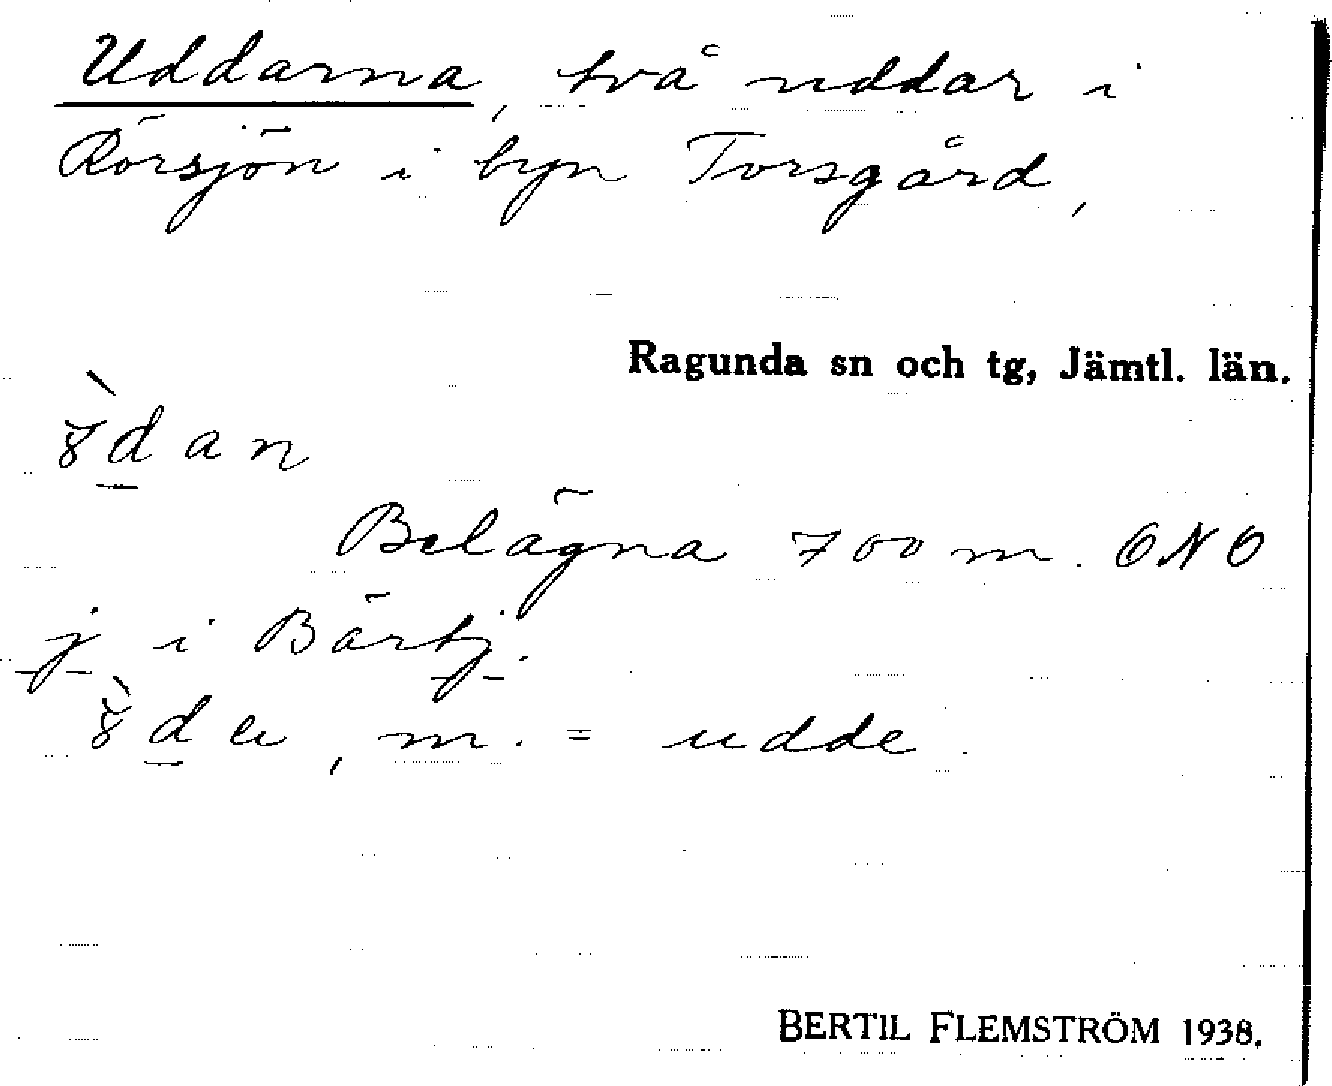 Uddarna, två uddar i
Rörsjön i byn Torsgård,
Ragunda sn och tg, Jämtl. län.
Belägna 700 m. ONO
j i Bärtj.
m. = udde.
BERTIL FLEMSTRÖM 1938.